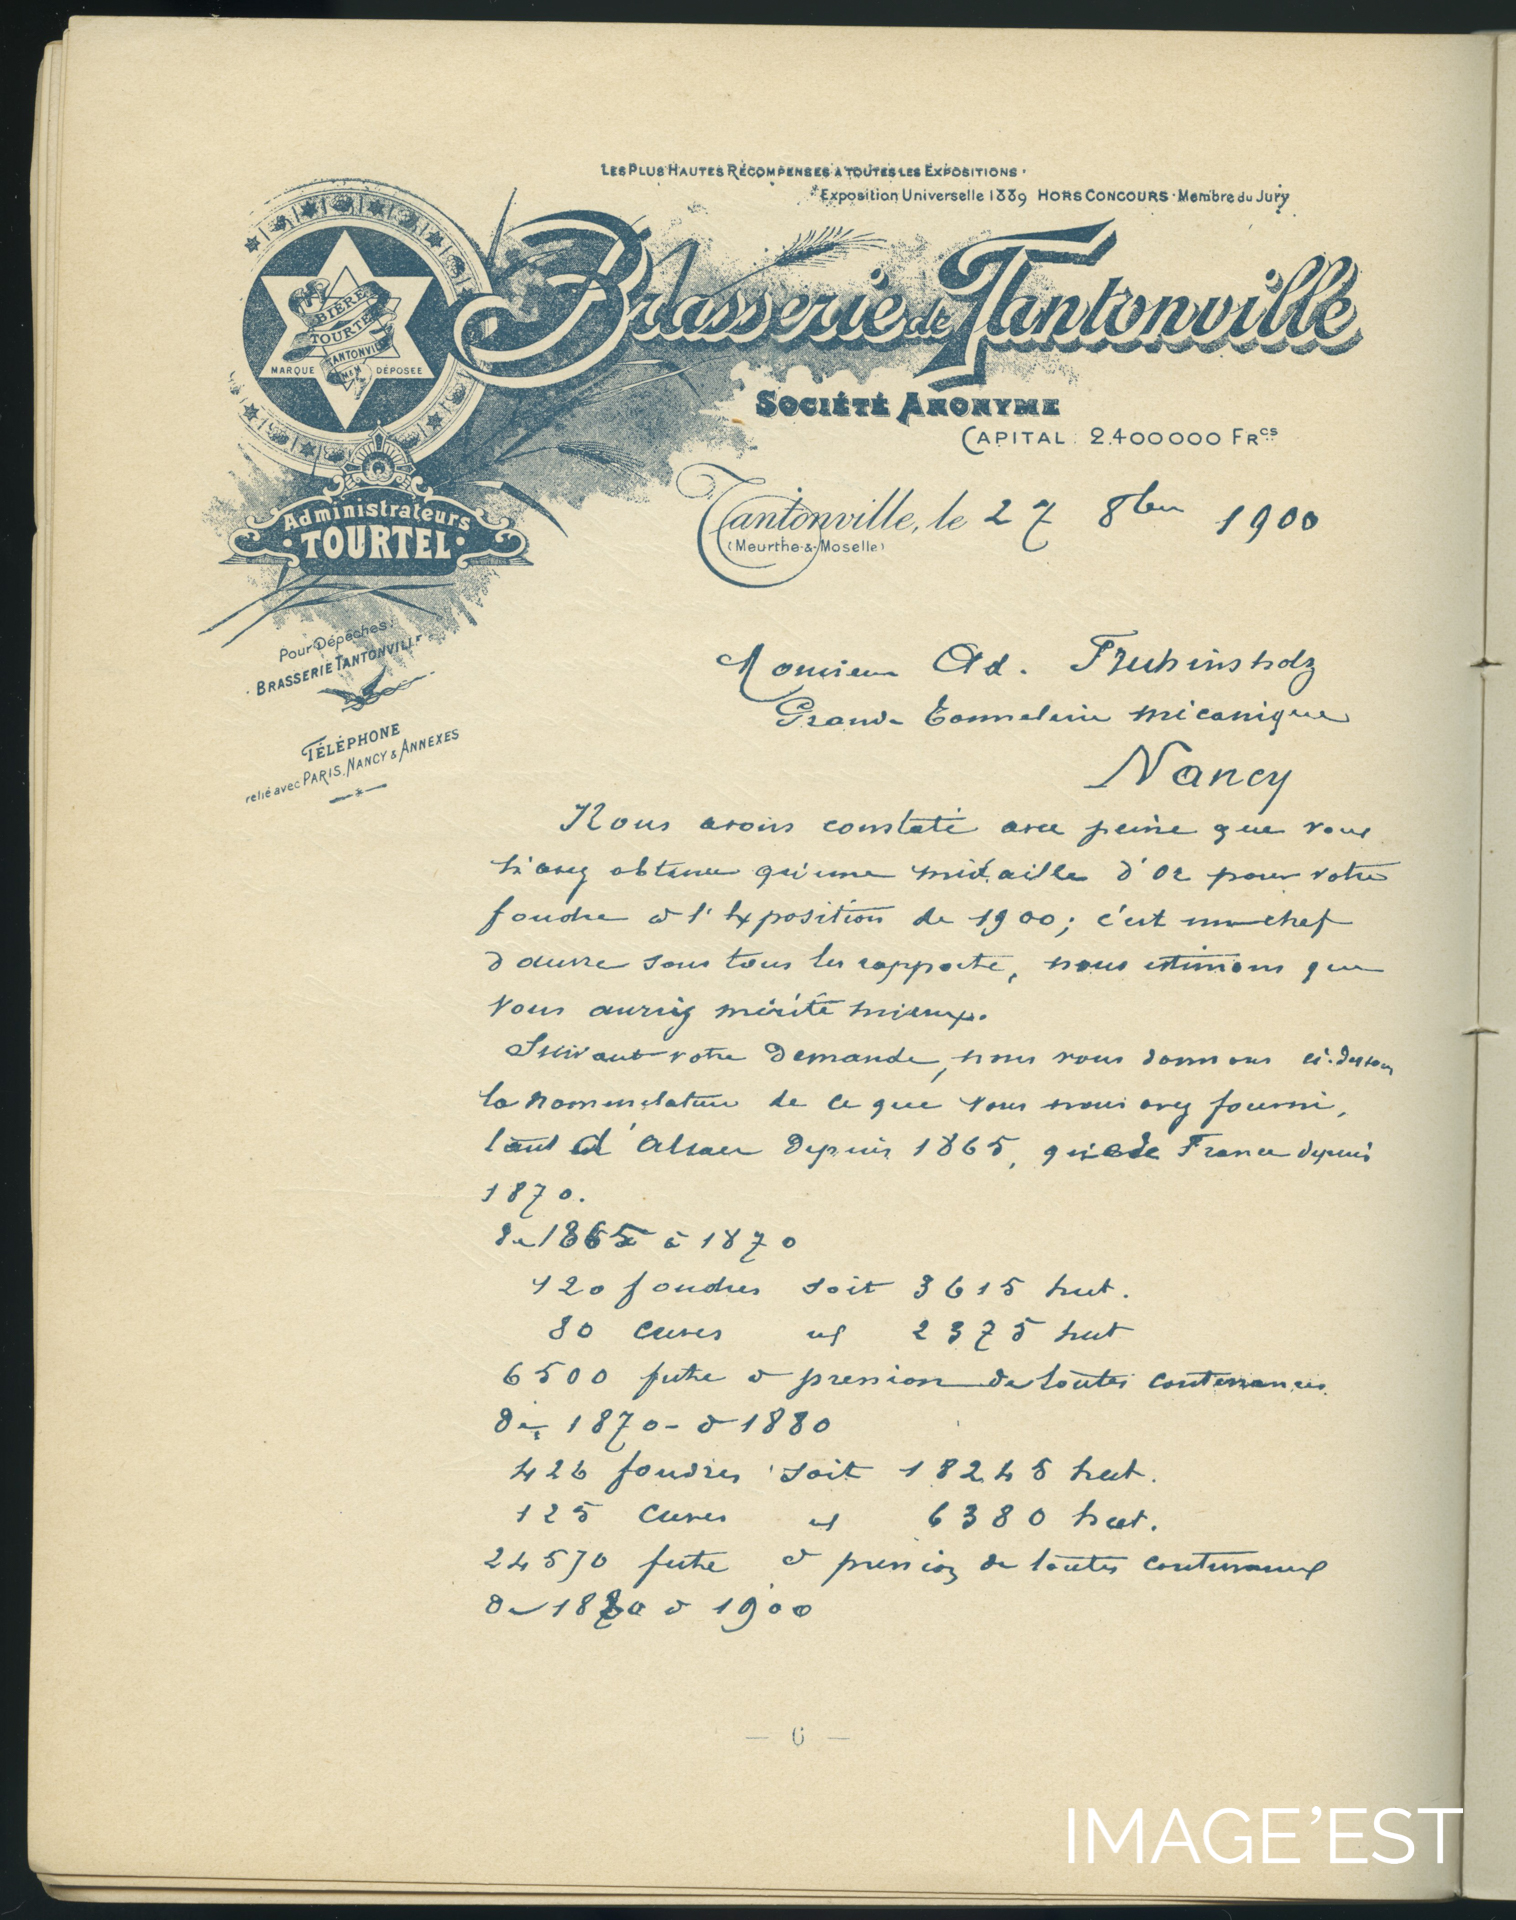 LES PLUS HAUTES RÉCOMPENSES A TOUTES LES EXPOSITIONS.
Exposition Universelle 1889 HORS CONCOURS. Membre du Jury
Brasserie de Tantonville
SOCIÉTÉ ANONYME
CAPITAL: 2.400000 FRcs
BIÈRE
TOURTEL
TANTONVILLE
MARQUE DÉPOSÉE
Administrateurs
TOURTEL
Pour Dépêches:
BRASSERIE TANTONVILLE
TÉLÉPHONE
relié avec PARIS, NANCY & ANNEXES
Tantonville, le 27 8bre 1900
(Meurthe-&-Moselle)
Monsieur Ad. Fruhinsholz
Grande Tonnelerie mécanique
Nancy
Nous avons constaté avec peine que vous
n'avez obtenu qu'une médaille d'Or pour votre
foudre à l'Exposition de 1900; c'est un chef
d'œuvre sous tous les rapports, nous estimons que
vous auriez mérité mieux.
Suivant votre demande, nous vous donnons ci-dessous
la nomenclature de ce que vous nous avez fourni,
tant d'Alsace depuis 1865, que de France depuis
1870.
de 1865 à 1870
120 foudres soit 3615 hect.
80 cuves id 2375 hect
6500 futs à pression de toutes contenances
de 1870 à 1880
426 foudres soit 18245 hect.
125 cuves id 6380 hect.
24570 futs à pression de toutes contenances
de 1880 à 1900
— 6 —
IMAGE'EST